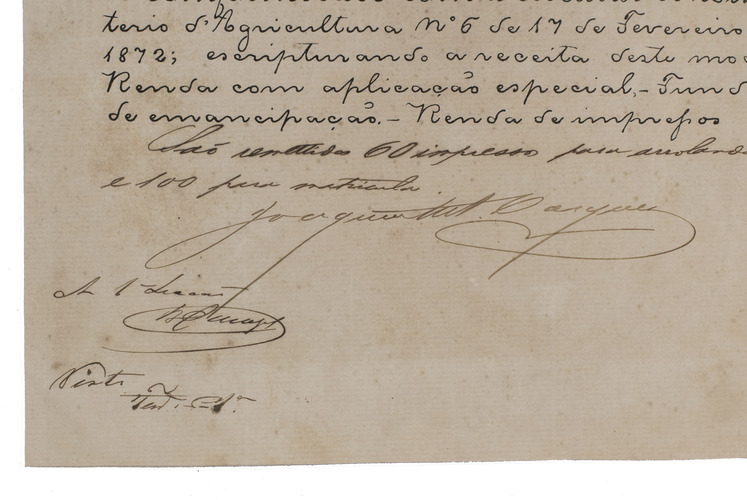 terio d'Agricultura Nº 6 de 17 de Fevereiro
1872; escripturando a receita deste mo
Renda com aplicação especial,- Fund
de emancipação.- Renda de impressos
São remettidos 60 impressos para arrolam
e 100 para matricula.
Joaquim
A 1ª Secção
Visto